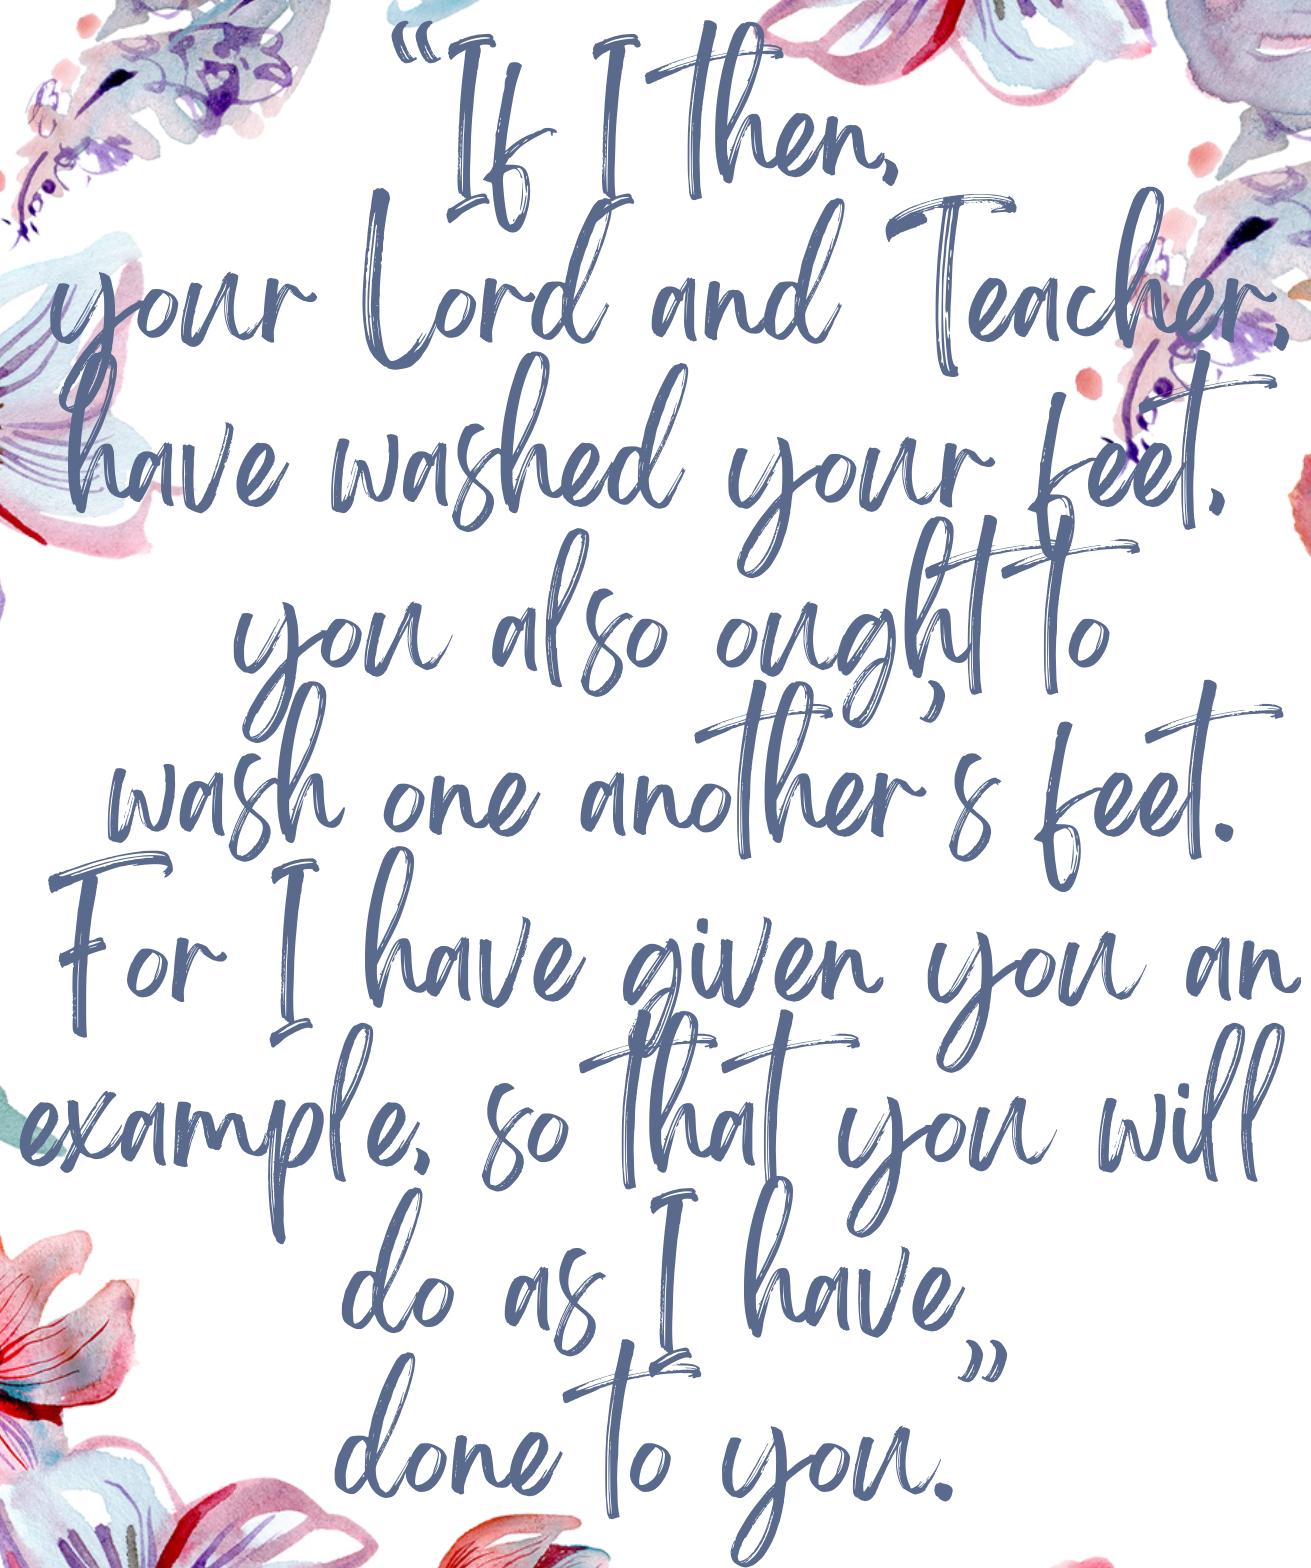 “If I then,
your Lord and Teacher,
have washed your feet,
you also ought to
wash one another’s feet.
For I have given you an
example, so that you will
do as I have
done to you.”